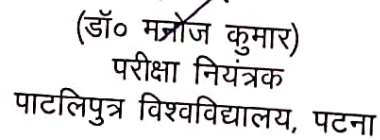 (डॉ० मनोज कुमार)
परीक्षा नियंत्रक
पाटलिपुत्र विश्वविद्यालय, पटना